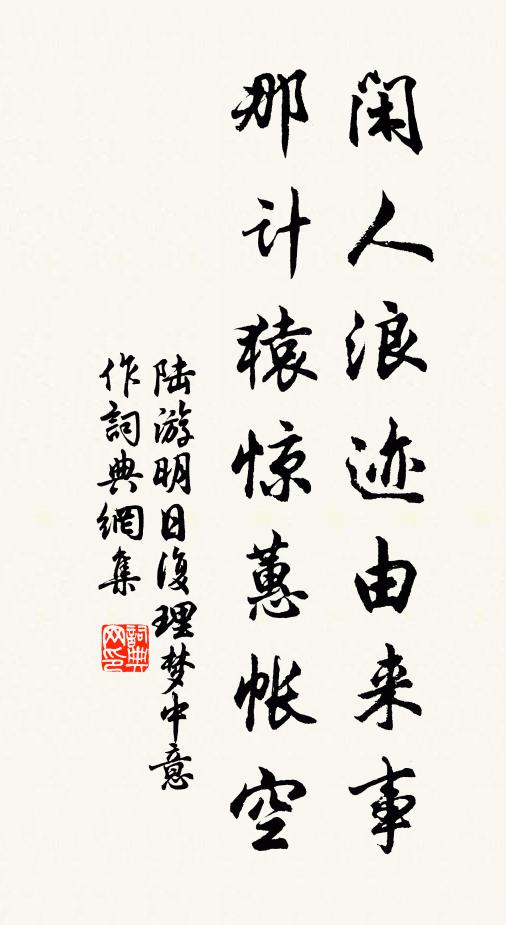 闲人浪迹由来事
那计猿惊蕙帐空
陆游明日復理梦中意
作詞典網集
詞典
网印